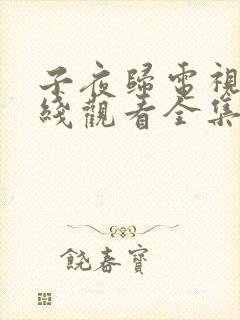 子夜歸電視
綫觀看全集
饒春寶